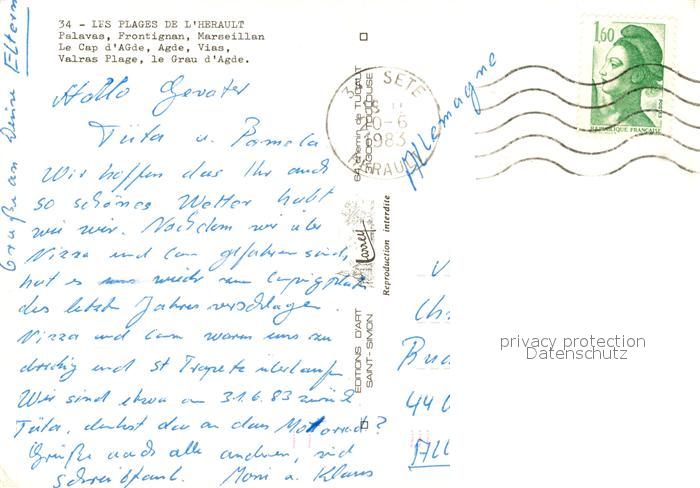 34 - LES PLAGES DE L'HERAULT
Palavas, Frontignan, Marseillan
Le Cap d'AGde, Agde, Vias,
Valras Plage, le Grau d'Agde.
Hallo Gevater
Tüta u. Pamela
Wir hoffen das Ihr auch
so schönes Wetter habt
wie wir. Nachdem wir über
Nizza und Can gefahren sind,
hat es uns wieder am Campingplatz
des letzten Jahres verschlagen.
Nizza und Can waren uns zu
dreckig und St Tropete überlaufen
Wir sind etwa am 31.6.83 zurück
Tüta, denkst du an dein Motorrad?
Grüße auch alle anderen, sind
schreibfaul. Moni u. Klaus
Grüße an Deine Eltern
EDITIONS D'ART
SAINT-SIMON
Larrey
Reproduction interdite
SETE
6
1983
HERAULT
1,60
POSTES
REPUBLIQUE FRANÇAISE
Allemagne
Ch
44
ALL
privacy protection
Datenschutz